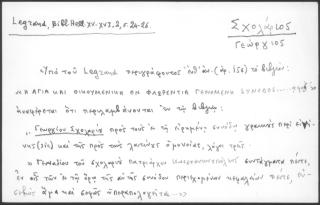 Legrand, Bibl. Hell. XV-XVI, 2, σ. 24-26.
Σχολάριος
Γεώργιος
Ὑπὸ τοῦ Legrand περιγράφοντος ὑπ' ἀρ. (ἀρ. 156) τὸ βιβλίον:
"Η ΑΓΙΑ ΚΑΙ ΟΙΚΟΥΜΕΝΙΚΗ ΕΝ ΦΛΩΡΕΝΤΙΑ ΓΕΝΟΜΕΝΗ ΣΥΝΟΔΟΣ
ἀναφέρεται ὅτι περιλαμβάνονται ἐν τῷ βιβλίῳ:
"Γεωργίου Σχολαρίου πρὸς τοὺς ἐν τῇ συνόδῳ γραικοὺς περὶ εἰρή-
νης (sic) καὶ τῆς πρὸς τοὺς λατίνους ὁμονοίας, λόγοι τρεῖς.
"Γενναδίου τοῦ σχολαρίου πατριάρχου κωνσταντινουπόλεως συντάγματα πέντε,
ἐν οἷς τῶν ἐν τῷ ὅρῳ τῆς αὐτῆς συνόδου περιεχομένων κεφαλαίων πέντε, εὐ-
σεβῶς ἅμα καὶ σοφῶς ὑπεραπολογεῖται...»